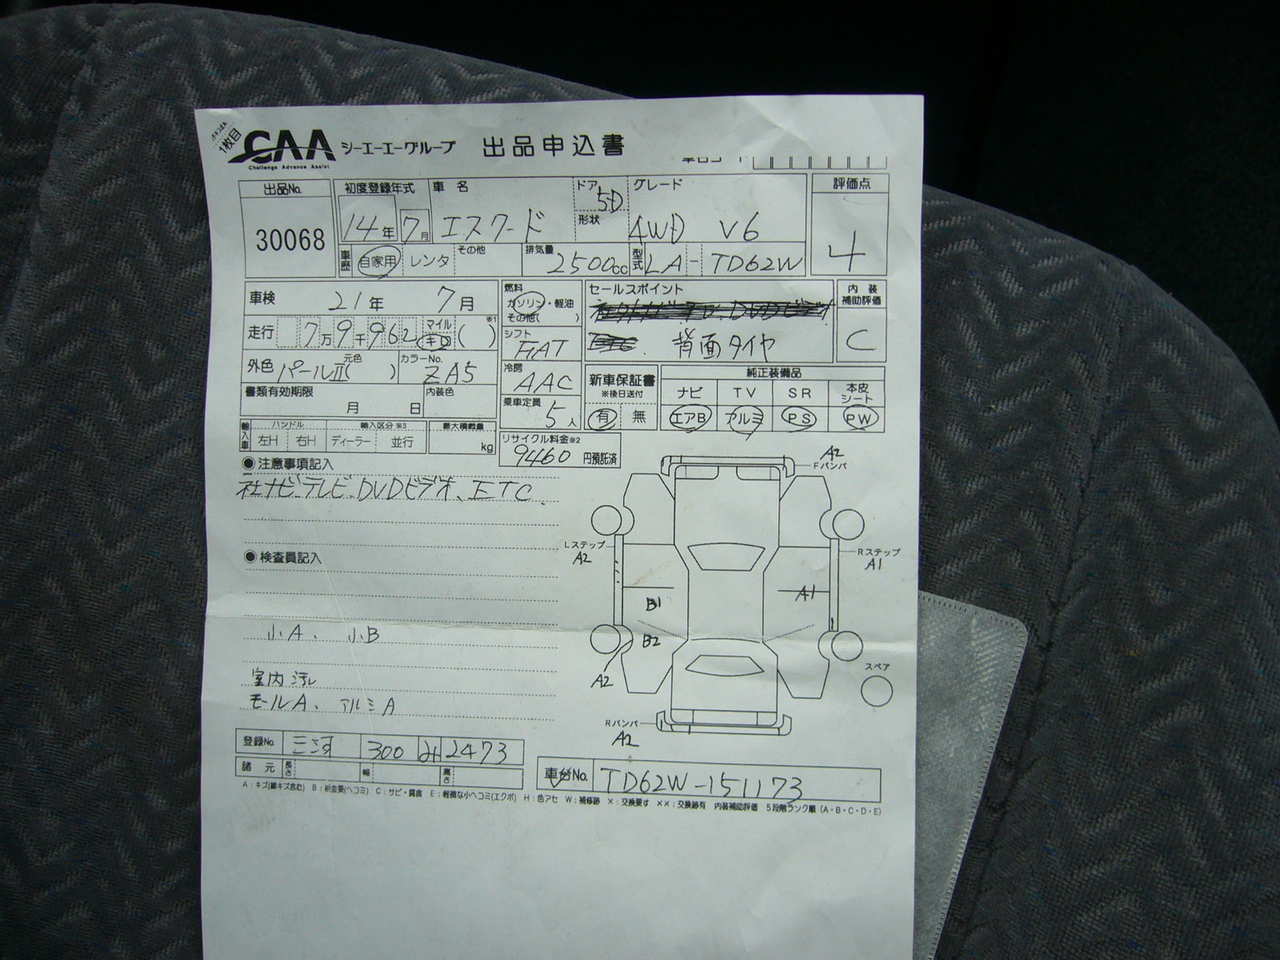 1枚目
CAA シーエーエーグループ 出品申込書
Challenge Advance Assist
出品No. 初度登録年式 車名 ドア 5D グレード 評価点
30068 14年 7月 エスクード 形状 4WD V6 4
車歴 自家用 レンタ その他 排気量 2500cc 型式 LA-TD62W
車検 21年 7月 燃料 ガソリン・軽油 その他( ) セールスポイント 内装補助評価
走行 7万9千962 マイル キロ ( )※1 シフト FAT 背面タイヤ C
外色 パールII 元色( ) カラーNo. ZA5 冷房 AAC 新車保証書 ※後日送付 純正装備品
書類有効期限 月 日 内装色 乗車定員 5人 有 無 ナビ TV SR 本皮シート
エアB アルミ PS PW
輸入車 ハンドル 左H 右H 輸入区分※3 ディーラー 並行 最大積載量 kg リサイクル料金※2 9460 円預託済
●注意事項記入
社ナビ テレビ DVDビデオ、ETC
A2 Fバンパ
Lステップ A2
Rステップ A1
●検査員記入
B1 A1
小A、小B B2
室内汚れ A2 スペア
モールA、アルミA
Rバンパ A2
登録No. 三河 300 み 2473
諸元 長さ 幅 高さ 車台No. TD62W-151173
A:キズ(線キズ含む) B:板金要(ヘコミ) C:サビ・腐食 E:軽微な小ヘコミ(エクボ) H:色アセ W:補修跡 X:交換要す XX:交換跡有 内装補助評価 5段階ランク順(A・B・C・D・E)